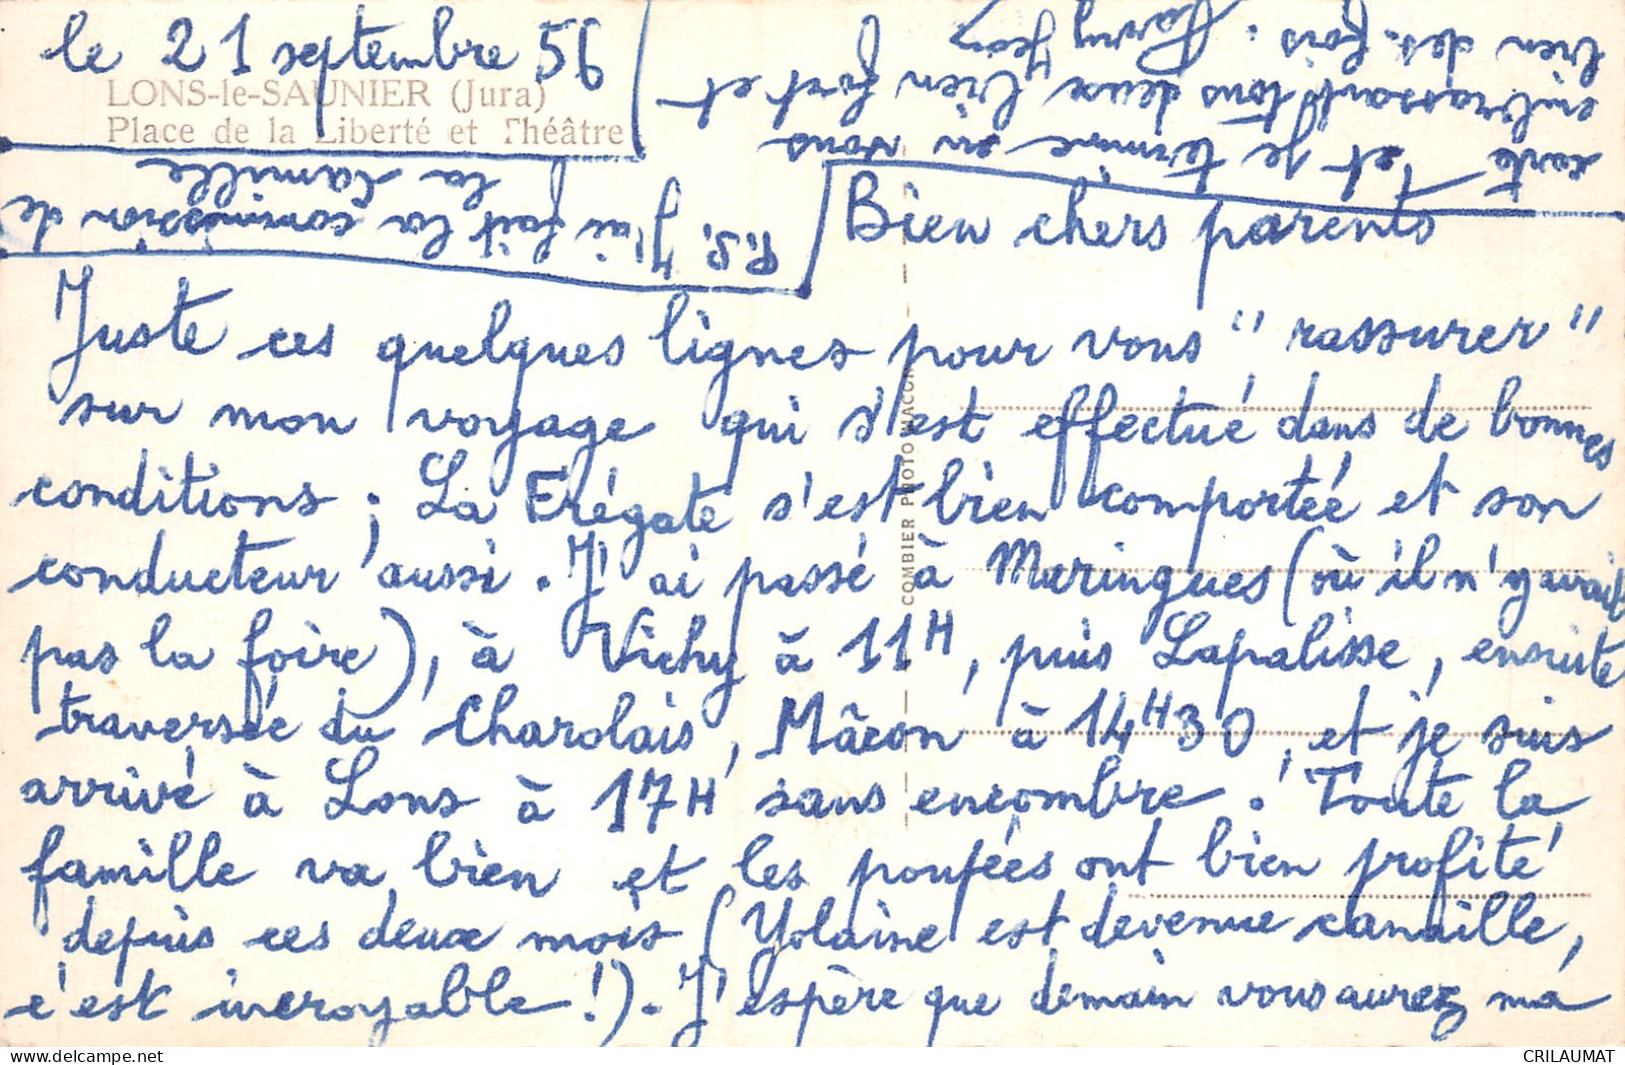 le 21 septembre 56
LONS-le-SAUNIER (Jura)
Place de la Liberté et Théâtre
Bien chers parents
Juste ces quelques lignes pour vous "rassurer"
sur mon voyage qui s'est effectué dans de bonnes
conditions ; La Frégate s'est bien comportée et son
conducteur aussi. J'ai passé à Maringues (où il n'y avait
pas la foire), à Vichy à 11H, puis Lapalisse, ensuite
traversée du Charolais, Mâcon à 14H30, et je suis
arrivé à Lons à 17H sans encombre. Toute la
famille va bien et les poupées ont bien profité
depuis ces deux mois (Yolaine est devenue canaille,
c'est incroyable !). J'espère que demain vous aurez ma
carte et je termine en vous
embrassant tous deux bien fort et
bien des fois.
P.S. J'ai fait la commission de
la famille
COMBIER PHOTO MACON
CRILAUMAT